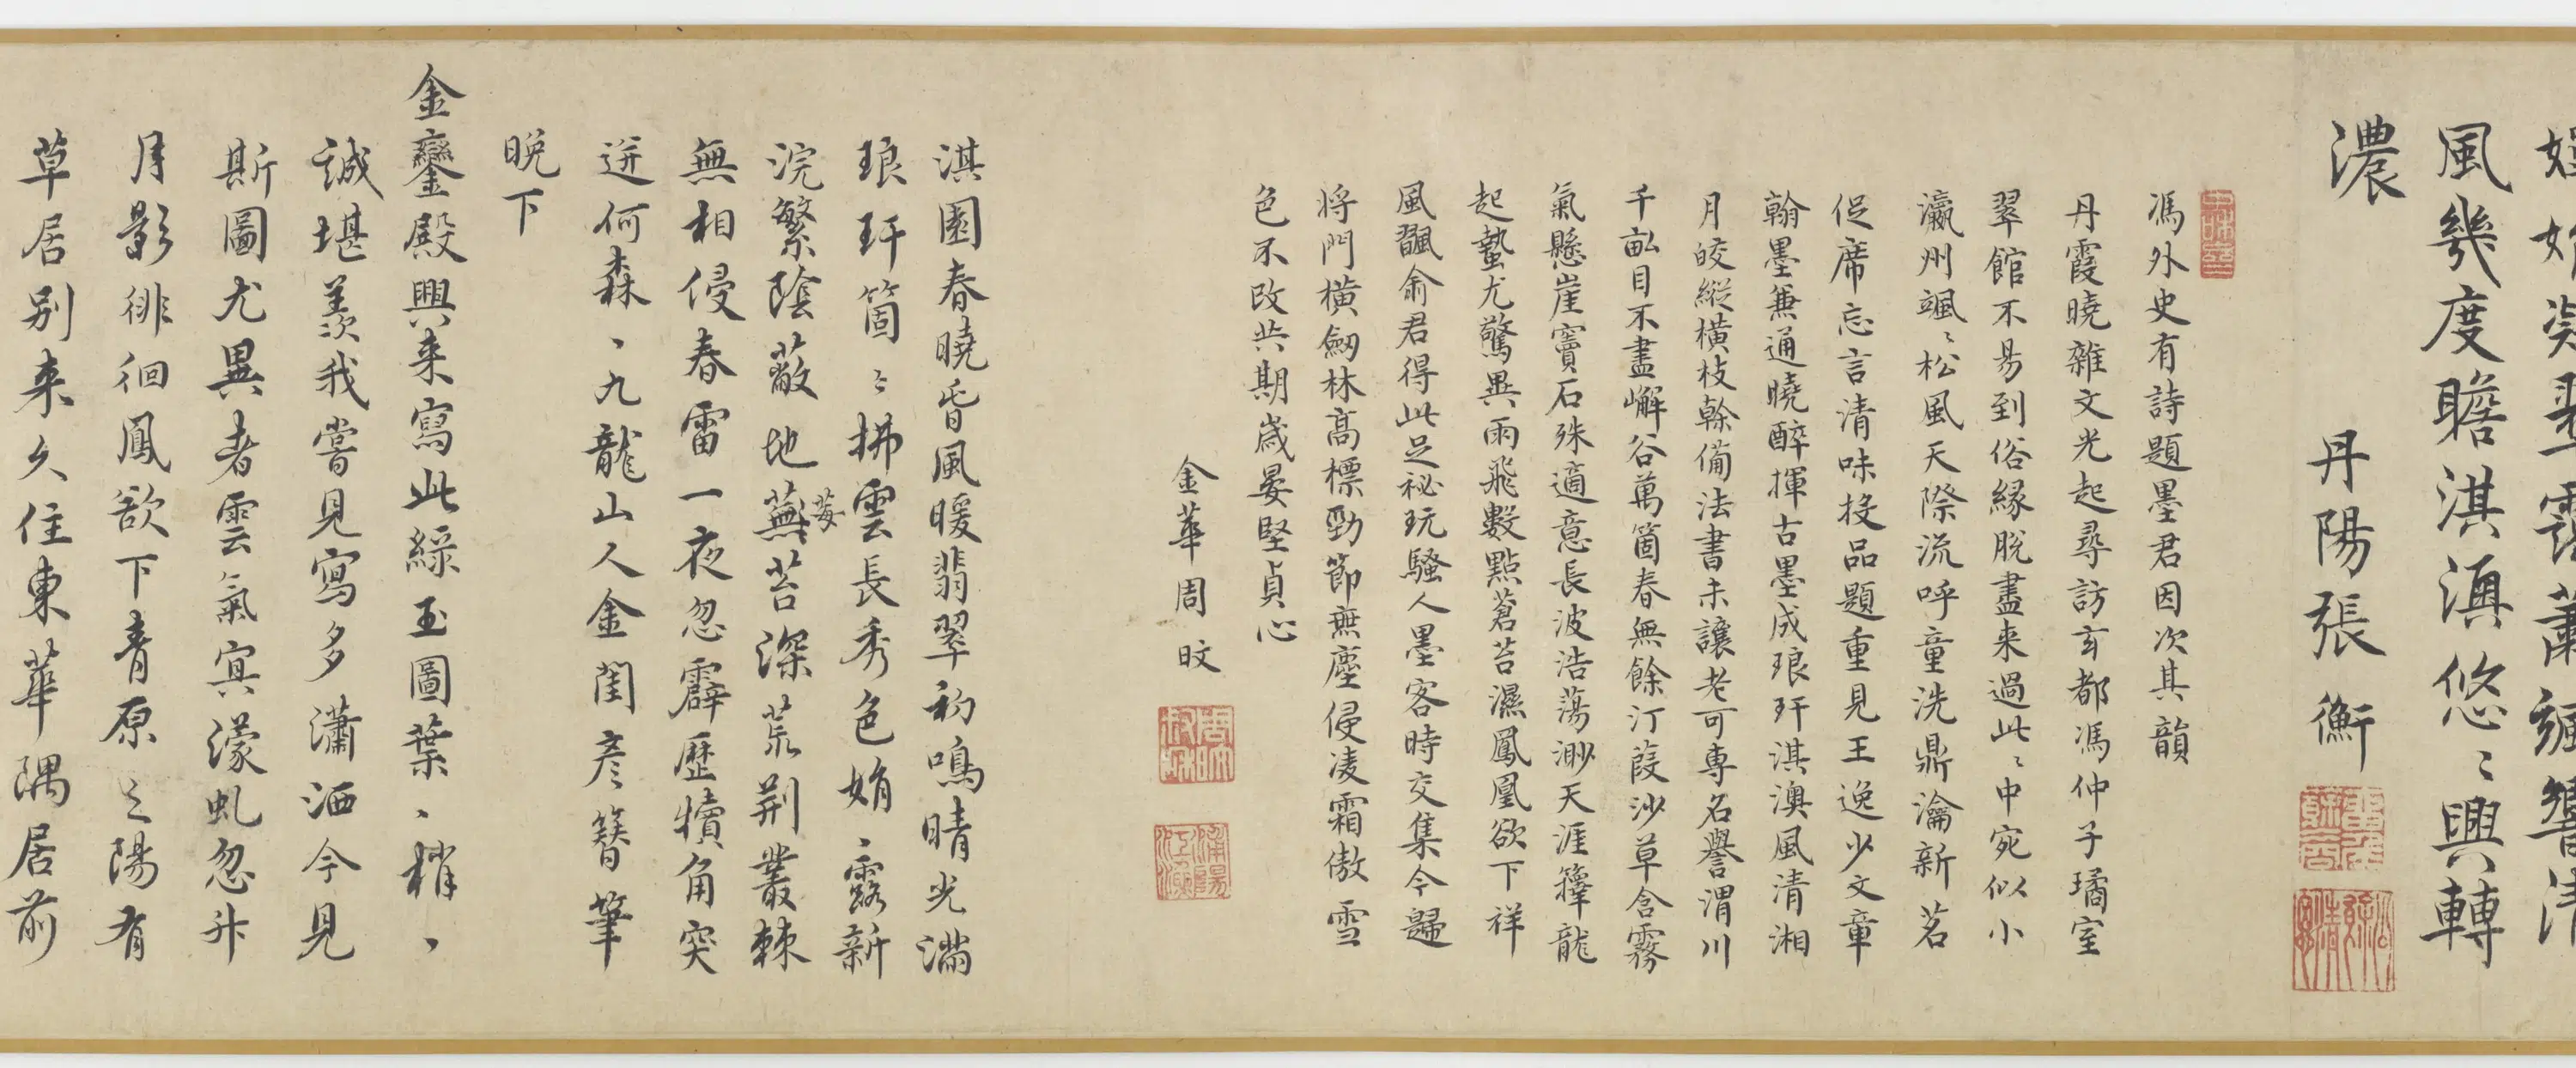 風幾度瞻淇澳悠〻興轉
濃
丹陽張衡
馮外史有詩題墨君因次其韻
丹霞曉雜文光起尋訪玄都馮仲子璚室
翠館不易到俗緣脫盡来過此〻中宛似小
瀛州颯〻松風天際流呼童洗鼎瀹新茗
促席忘言清味投品題重見王逸少文章
翰墨兼通曉醉揮古墨成琅玕淇澳風清湘
月皎縱横枝榦備法書未讓老可專名譽渭川
千畝目不盡嶰谷萬箇春無餘汀葭沙草含霧
氣懸崖竇石殊適意長波浩蕩渺天涯籜龍
起蟄尤驚異雨飛數點蒼苔濕鳳凰欲下祥
風翻俞君得此足祕玩騷人墨客時交集今歸
将門横劒林高標勁節無塵侵凌霜傲雪
色不改共期歲晏堅貞心
金華周旼
淇園春曉香風暖翡翠初鳴晴光滿
琅玕箇〻拂雲長秀色娟〻露新
浣繁陰蔽地蕪苔深荒荆叢棘
莓
無相侵春雷一夜忽霹歷犢角突
迸何森〻九龍山人金閨彦簪筆
晚下
金鑾殿興来寫此綠玉圖葉〻梢〻
誠堪羨我嘗見寫多瀟洒今見
斯圖尤異者雲氣冥濛虬忽升
月影徘徊鳳欲下青原之陽有
草居别来久住東華隅居前